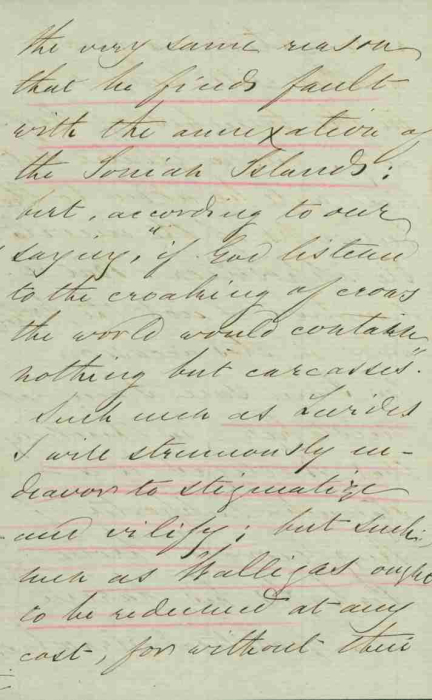 the very same reason
that he finds fault
with the annexation of
the Ionian Islands;
but, according to our
saying, "if God listened
to the croaking of crows
the world would contain
nothing but carcasses".
Such men as
I will strenuously en-
deavor to stigmatize
and vilify; but such
men as ought
to be redeemed at any
cost, for without their